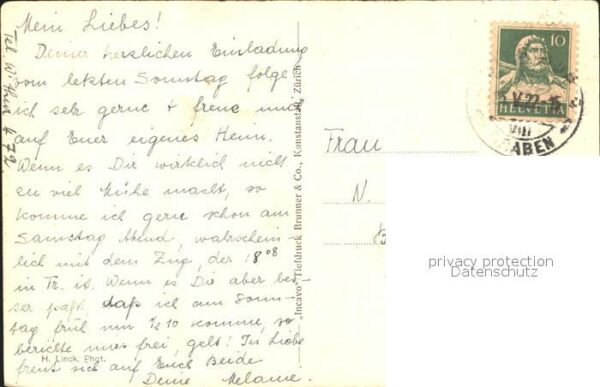 Mein Liebes!
Deiner herzlichen Einladung
vom letzten Sonntag folge
ich sehr gerne + freue mich
auf Euer eigenes Heim.
Wenn es Dir wirklich nicht
zu viel Mühe macht, so
komme ich gerne schon am
Samstag Abend, wahrschein-
lich mit dem Zug, der 18 08
in Fr. ist. Wenn es Dir aber bes-
ser paßt, daß ich am Sonn-
tag früh um ½10 komme, so
berichte mir frei, gelt! In Liebe
freut sich auf Euch Beide
Deine Melanie.
Tel. W'thur 4.72
H. Linck, Phot.
„Incavo" Tiefdruck Brunner & Co., Kunstanstalt, Zürich
10
HELVETIA
V.22
VIII
GRABEN
Frau
N.
privacy protection
Datenschutz